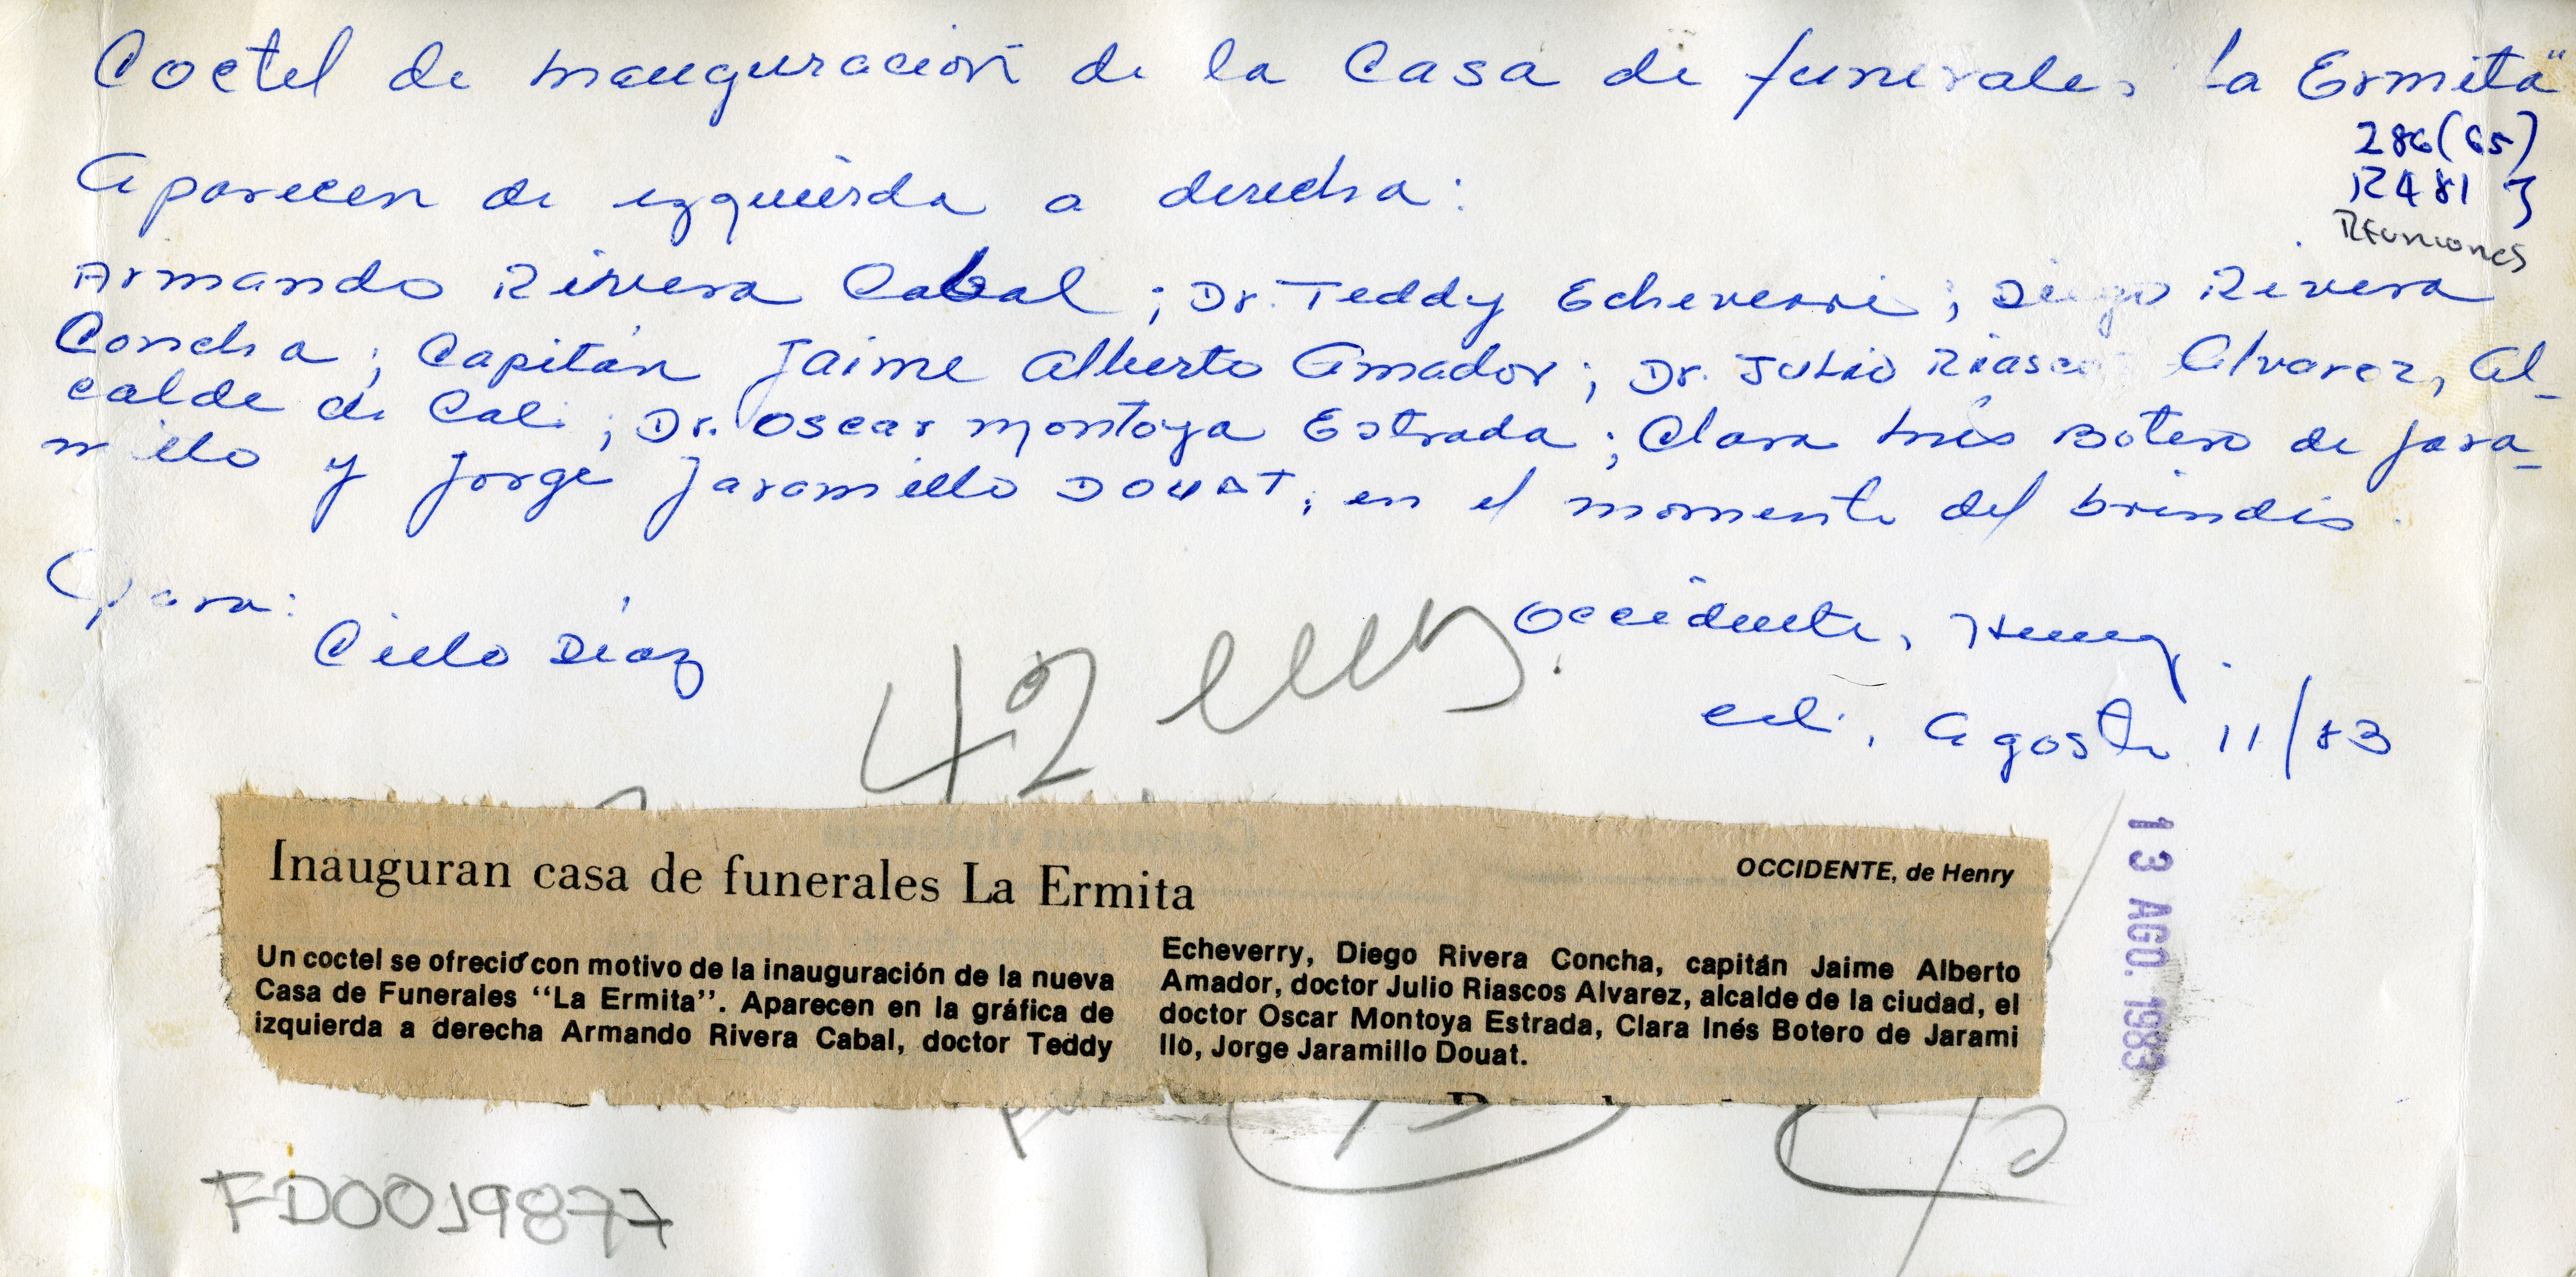 Coctel de Inauguración de la Casa de funerales "La Ermita"
286(65)
R481 J
Reuniones
Aparecen de izquierda a derecha:
Armando Rivera Cabal; Dr. Teddy Echeverri; Diego Rivera
Concha; Capitán Jaime Alberto Amador; Dr. Julio Riascos Alvarez, Al-
calde de Cali; Dr. Oscar Montoya Estrada; Clara Inés Botero de Jara-
millo y Jorge Jaramillo DOUAT, en el momento del brindis.
Para:
Cielo Díaz
Occidente, Henry.
Cali, Agosto 11/83
42
13 AGO. 1983
Inauguran casa de funerales La Ermita
OCCIDENTE, de Henry
Un coctel se ofreció con motivo de la inauguración de la nueva
Casa de Funerales "La Ermita". Aparecen en la gráfica de
izquierda a derecha Armando Rivera Cabal, doctor Teddy
Echeverry, Diego Rivera Concha, capitán Jaime Alberto
Amador, doctor Julio Riascos Alvarez, alcalde de la ciudad, el
doctor Oscar Montoya Estrada, Clara Inés Botero de Jarami
llo, Jorge Jaramillo Douat.
FD0019877